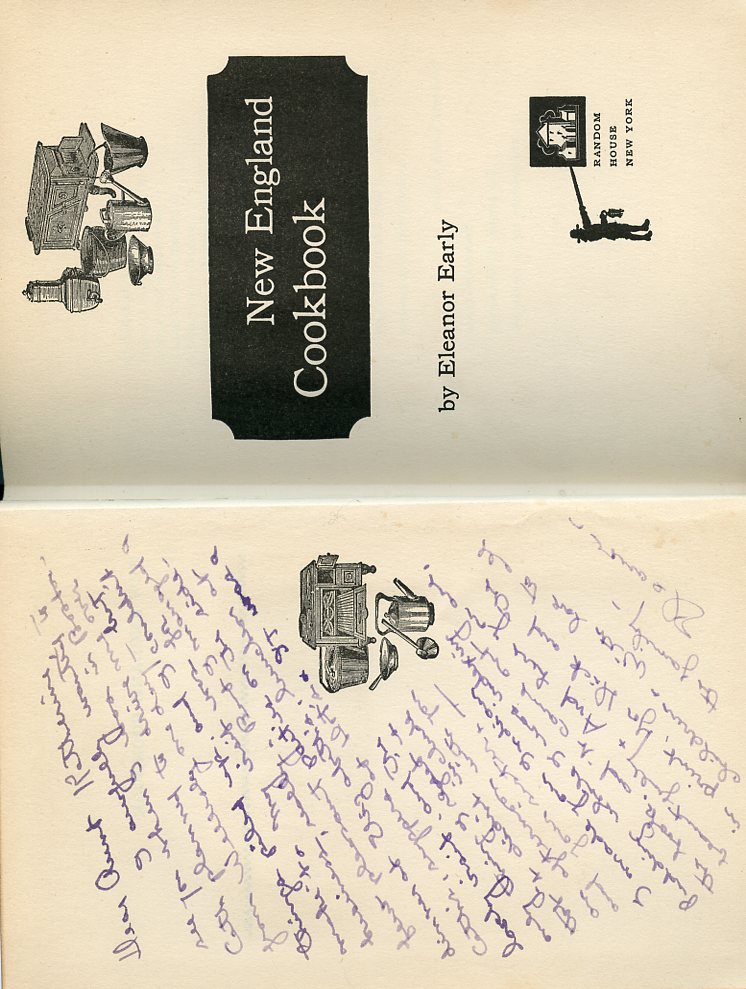 Dear Aunt Katherine
I awfully wanted to
see you when I was in Boston.
Cath planned to drive me over
from Wellesley one day — but
things piled up, and I couldn't
make it. My visit was for
business, really. But I managed a
few pleasant parties on the side:
dinner at Elizabeth's; luncheon at
Cath's; supper at Dot's. It was a
lovely visit; and the
only thing I regret is
that it didn't include
an afternoon with you
and your sister. —
I made your Indian
Pudding while I was indexing
the book, and it came out
beautifully. And here you are,
in print for Dick and the
children. With love to all
the family —
Eleanor
New England
Cookbook
by Eleanor Early
RANDOM
HOUSE
NEW YORK